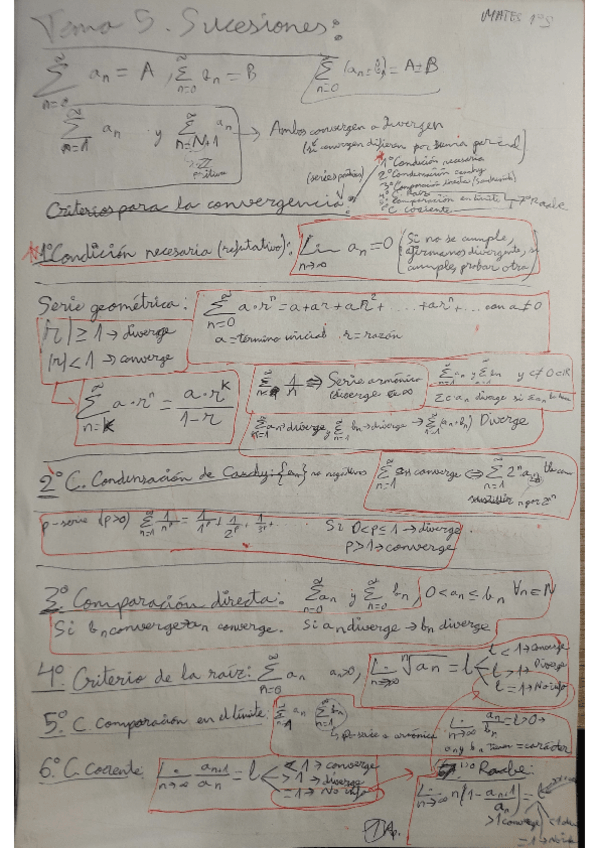 MATES 1ºS
Tema 5. Sucesiones:
∑ n=0 ∞ aₙ = A , ∑ n=0 ∞ bₙ = B
∑ n=0 ∞ (aₙ ± bₙ) = A ± B
∑ n=1 ∞ aₙ y ∑ n=N+1 ∞ aₙ → Ambos convergen o divergen
(si convergen difieren por suma parcial)
(series positivas)
1º Condición necesaria
2º Condensación cauchy
3º Comparación directa
4º Raíz
5º Comparación en límite
6º C cociente → 7º Raabe
Criterios para la convergencia:
*1º Condición necesaria (refutativo): Lim n→∞ aₙ = 0 (Si no se cumple,
afirmamos divergente, si
cumple, probar otro)
Serie geométrica: ∑ n=0 ∞ a·rⁿ = a + ar + ar² + .... + arⁿ + ... con a ≠ 0
a = término inicial r = razón
|r| ≥ 1 → diverge
|r| < 1 → converge
∑ n=k ∞ a·rⁿ = a·rᵏ / 1-r
∑ 1/n ⇔ Serie armónica
diverge ∞
∑ aₙ y ∑ bₙ y c ≠ 0 ∈ R
∑ c·aₙ diverge si ∑ aₙ
∑ n=1 ∞ aₙ → diverge y ∑ n=1 ∞ bₙ → diverge → ∑ n=1 ∞ (aₙ + bₙ) Diverge
2º C. Condensación de Cauchy: {aₙ} no negativo
∑ n=1 ∞ aₙ converge ⇔ ∑ n=1 ∞ 2ⁿ
sustituir n por 2ⁿ
p-serie (p>0) ∑ n=1 ∞ 1/nᵖ = 1/1ᵖ + 1/2ᵖ + 1/3ᵖ ...
Si 0<p≤1 → diverge
p>1 → converge
3º Comparación directa: ∑ n=0 ∞ aₙ y ∑ n=0 ∞ bₙ, 0 < aₙ ≤ bₙ ∀n∈N
Si bₙ converge → aₙ converge. Si aₙ diverge → bₙ diverge
4º. Criterio de la raíz: ∑ n=0 ∞ aₙ aₙ>0, Lim n→∞ ⁿ√aₙ = l
l < 1 → Converge
l > 1 → Diverge
l = 1 → No info
5º C. Comparación en el límite: ∑ n=1 ∞ aₙ ∑ n=1 ∞ bₙ
↳ p-serie o armónica
Lim n→∞ aₙ/bₙ = l > 0 →
aₙ y bₙ tienen = carácter
6º C. Cociente: Lim n→∞ aₙ₊₁/aₙ = l
< 1 → converge
> 1 → diverge
= 1 → No info
7º Raabe:
Lim n→∞ n(1 - aₙ₊₁/aₙ) = l
>1 converge
= 1 → No info